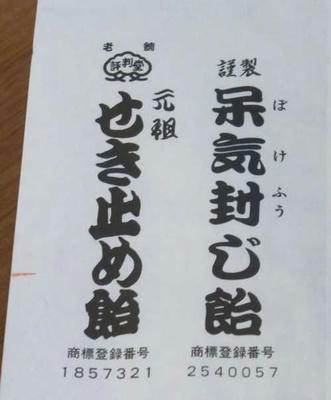 謹製
呆気封じ飴
ぼけふう
商標登録番号
2540057
老舗
評判堂
元祖
せき止め飴
商標登録番号
1857321